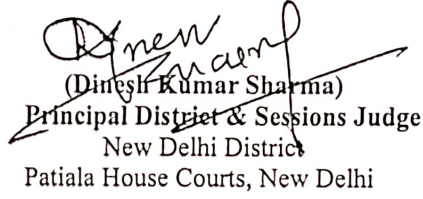 (Dinesh Kumar Sharma)
Principal District & Sessions Judge
New Delhi District
Patiala House Courts, New Delhi